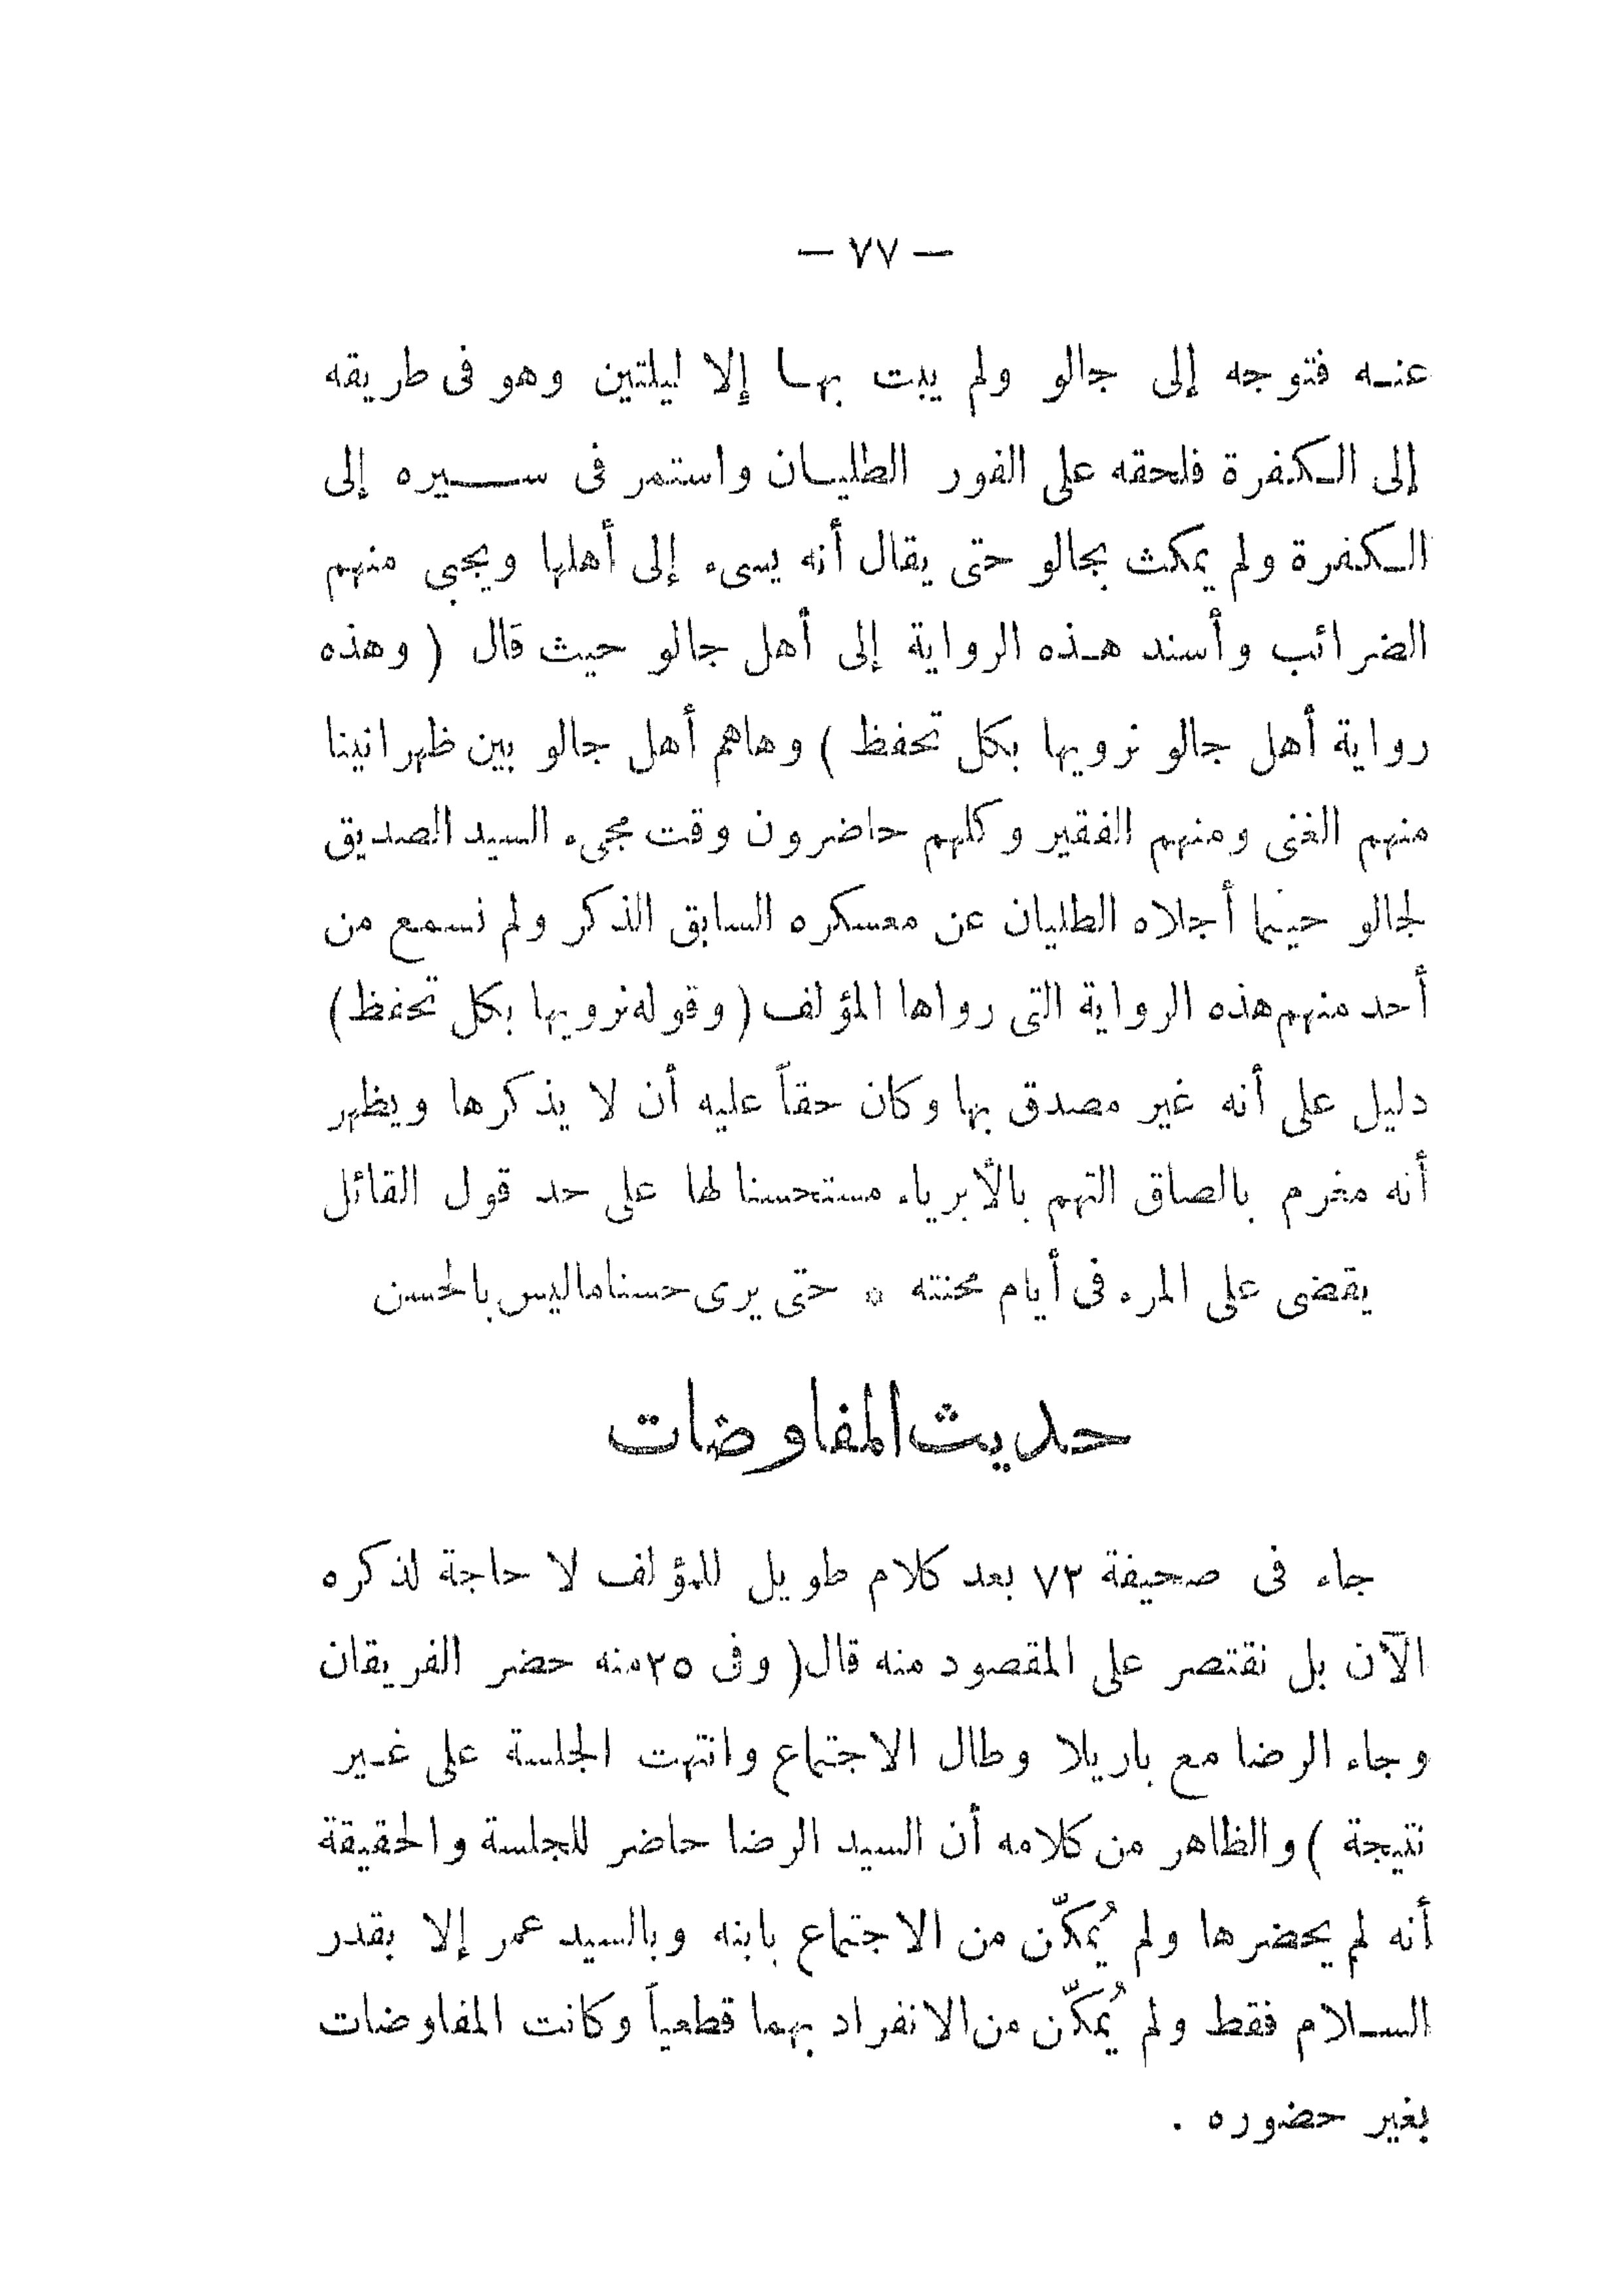 — ٧٧ —
عنه فتوجه إلى جالو ولم يبت بها إلا ليلتين وهو فى طريقه
إلى الكفرة فلحقه على الفور الطليان واستمر فى سيره إلى
الكفرة ولم يمكث بجالو حتى يقال أنه يسىء إلى أهلها ويجبى منهم
الضرائب وأسند هذه الرواية إلى أهل جالو حيث قال ( وهذه
رواية أهل جالو نرويها بكل تحفظ ) وهاهم أهل جالو بين ظهرانينا
منهم الغنى ومنهم الفقير وكلهم حاضرون وقت مجىء السيد الصديق
لجالو حينما أجلاه الطليان عن معسكره السابق الذكر ولم نسمع من
أحد منهم هذه الرواية التى رواها المؤلف ( وقوله نرويها بكل تحفظ )
دليل على أنه غير مصدق بها وكان حقاً عليه أن لا يذكرها ويظهر
أنه مغرم بالصاق التهم بالأبرياء مستحسنا لها على حد قول القائل
يقضى على المرء فى أيام محنته * حتى يرى حسنا ماليس بالحسن
حديث المفاوضات
جاء فى صحيفة ٧٣ بعد كلام طويل للمؤلف لا حاجة لذكره
الآن بل نقتصر على المقصود منه قال ( وفى ٢٥ منه حضر الفريقان
وجاء الرضا مع باريلا وطال الاجتماع وانتهت الجلسة على غير
نتيجة ) والظاهر من كلامه أن السيد الرضا حاضر للجلسة والحقيقة
أنه لم يحضرها ولم يُمكّن من الاجتماع بابنه وبالسيد عمر إلا بقدر
السلام فقط ولم يُمكّن من الانفراد بهما قطعياً وكانت المفاوضات
بغير حضوره .